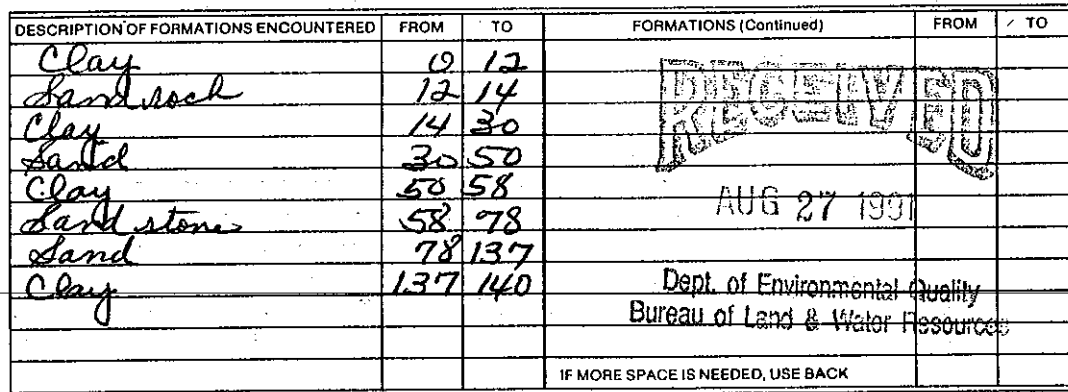 DESCRIPTION OF FORMATIONS ENCOUNTERED FROM TO FORMATIONS (Continued) FROM TO
Clay 0 12
Sand rock 12 14
Clay 14 30
Sand 30 50
Clay 50 58
Sand stone 58 78
Sand 78 137
Clay 137 140
RECEIVED
AUG 27 1991
Dept. of Environmental Quality
Bureau of Land & Water Resources
IF MORE SPACE IS NEEDED, USE BACK